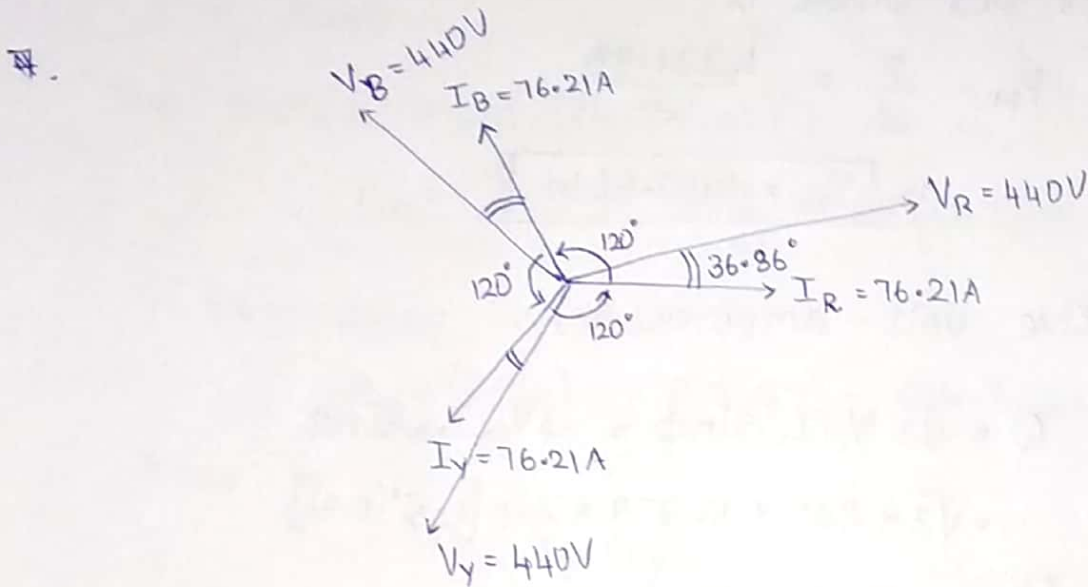 V_B = 440V
I_B = 76.21A
V_R = 440V
120°
36.86°
120°
I_R = 76.21A
120°
I_Y = 76.21A
V_Y = 440V